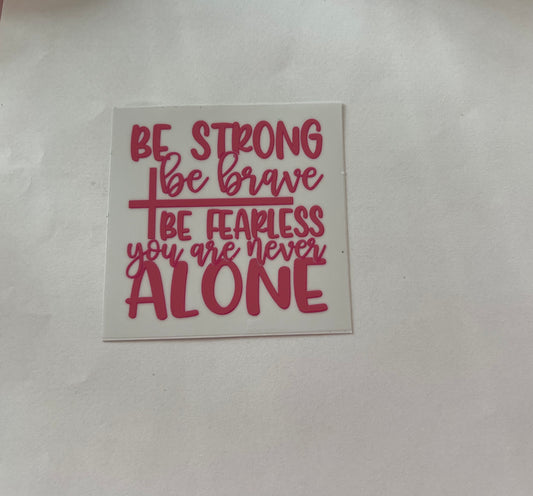 BE STRONG
be brave
BE FEARLESS
you are never
ALONE